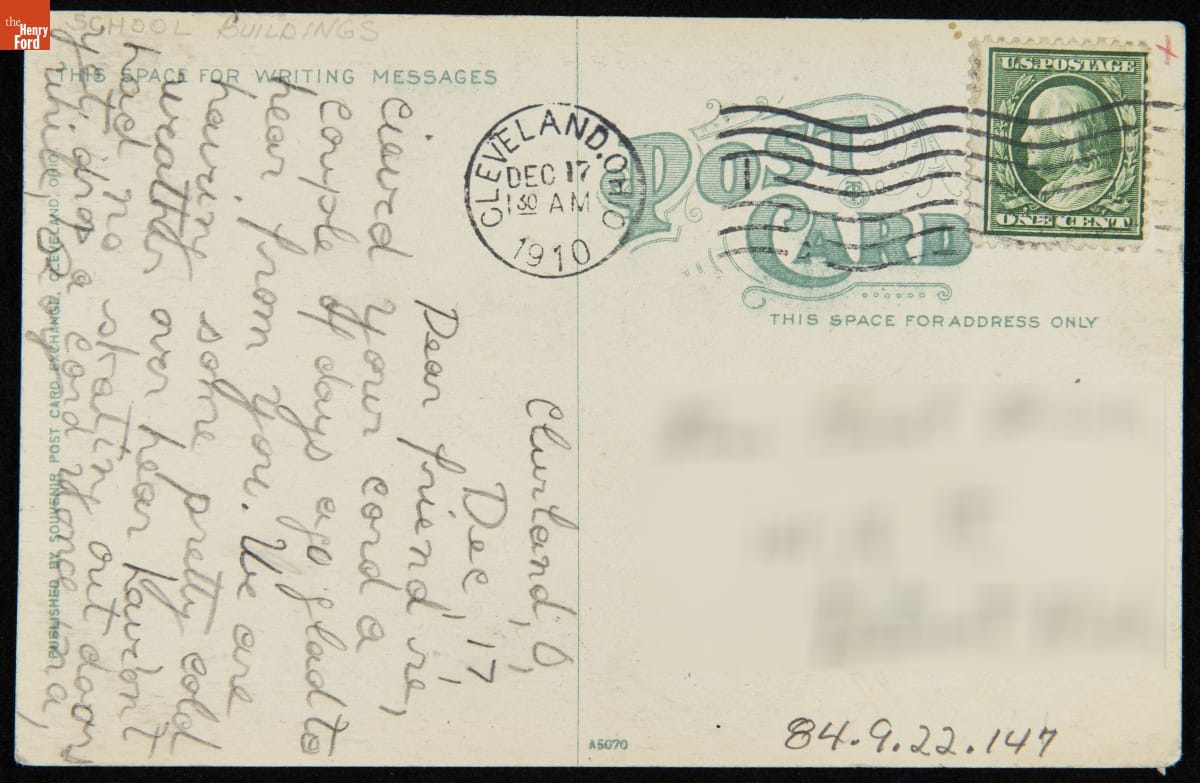 the
Henry
Ford
SCHOOL BUILDINGS
THIS SPACE FOR WRITING MESSAGES
Clevland, O,
Dec, 17,
Dear friend,
Cieved your card a
Couple of days ago glad to
hear from you. We are
having some pretty cold
weather over hear havent
hatd no skating out door
yet drop a card yonce in a,
while,
PUBLISHED BY SOUVENIR POST CARD EXCHANGE, CLEVELAND, OHIO.
CLEVELAND.OHIO
DEC 17
1 30 AM
1910
POST
CARD
U.S.POSTAGE
ONE CENT
THIS SPACE FOR ADDRESS ONLY
A5070
84.9.22.147